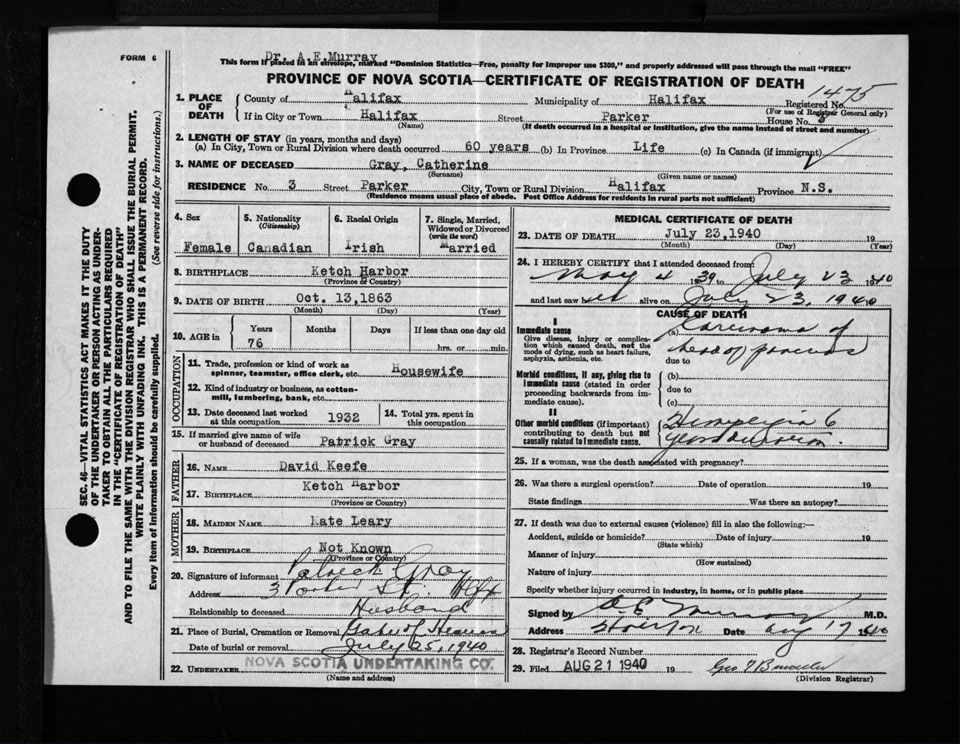 FORM 6
Dr. A.E.Murray
This form if placed in an envelope, marked "Dominion Statistics—Free, penalty for improper use $300," and properly addressed will pass through the mail "FREE"
PROVINCE OF NOVA SCOTIA—CERTIFICATE OF REGISTRATION OF DEATH
1475
1. PLACE OF DEATH
County of Halifax Municipality of Halifax Registered No.
(For use of Registrar General only)
If in City or Town Halifax Street Parker House No. 3
(Name) (If death occurred in a hospital or institution, give the name instead of street and number)
2. LENGTH OF STAY (in years, months and days)
(a) In City, Town or Rural Division where death occurred 60 years (b) In Province Life (c) In Canada (if immigrant)
3. NAME OF DECEASED Gray, Catherine
(Surname) (Given name or names)
RESIDENCE No. 3 Street Parker City, Town or Rural Division Halifax Province N.S.
(Residence means usual place of abode. Post Office Address for residents in rural parts not sufficient)
4. Sex
Female
5. Nationality
(Citizenship)
Canadian
6. Racial Origin
Irish
7. Single, Married, Widowed or Divorced
(write the word)
Married
8. BIRTHPLACE Ketch Harbor
(Province or Country)
9. DATE OF BIRTH Oct. 13,1863
(Month) (Day) (Year)
10. AGE in Years Months Days If less than one day old
76 hrs. or min.
OCCUPATION
11. Trade, profession or kind of work as spinner, teamster, office clerk, etc. Housewife
12. Kind of industry or business, as cotton-mill, lumbering, bank, etc.
13. Date deceased last worked at this occupation 1932
14. Total yrs. spent in this occupation
15. If married give name of wife or husband of deceased Patrick Gray
FATHER
16. NAME David Keefe
17. BIRTHPLACE Ketch Harbor
(Province or Country)
MOTHER
18. MAIDEN NAME Kate Leary
19. BIRTHPLACE Not Known
(Province or Country)
20. Signature of informant Patrick Gray
Address 3 Parker St. Hfx
Relationship to deceased Husband
21. Place of Burial, Cremation or Removal Gate of Heaven
Date of burial or removal July 25, 1940
22. UNDERTAKER NOVA SCOTIA UNDERTAKING CO.
(Name and address)
MEDICAL CERTIFICATE OF DEATH
23. DATE OF DEATH July 23,1940 19
(Month) (Day) (Year)
24. I HEREBY CERTIFY that I attended deceased from:
May 4 1939 to July 23 1940
and last saw her alive on July 23, 1940
CAUSE OF DEATH
I
Immediate cause
Give disease, injury or complication which caused death, not the mode of dying, such as heart failure, asphyxia, asthenia, etc.
(a) Carcinoma of head of pancreas
due to
Morbid conditions, if any, giving rise to immediate cause (stated in order proceeding backwards from immediate cause)
(b)
due to
(c)
II
Other morbid conditions (if important) contributing to death but not causally related to immediate cause.
Hemiplegia 6 years duration.
25. If a woman, was the death associated with pregnancy?
26. Was there a surgical operation? Date of operation 19
State findings Was there an autopsy?
27. If death was due to external causes (violence) fill in also the following:—
Accident, suicide or homicide? Date of injury 19
(State which)
Manner of injury
(How sustained)
Nature of injury
Specify whether injury occurred in industry, in home, or in public place
Signed by A E Murray M.D.
Address Date Aug 17 1940
28. Registrar's Record Number
29. Filed AUG 21 1940 19
(Division Registrar)
SEC. 46—VITAL STATISTICS ACT MAKES IT THE DUTY
OF THE UNDERTAKER OR PERSON ACTING AS UNDER-
TAKER TO OBTAIN ALL THE PARTICULARS REQUIRED
IN THE "CERTIFICATE OF REGISTRATION OF DEATH"
AND TO FILE THE SAME WITH THE DIVISION REGISTRAR WHO SHALL ISSUE THE BURIAL PERMIT.
WRITE PLAINLY WITH UNFADING INK. THIS IS A PERMANENT RECORD.
Every item of information should be carefully supplied. (See reverse side for instructions.)